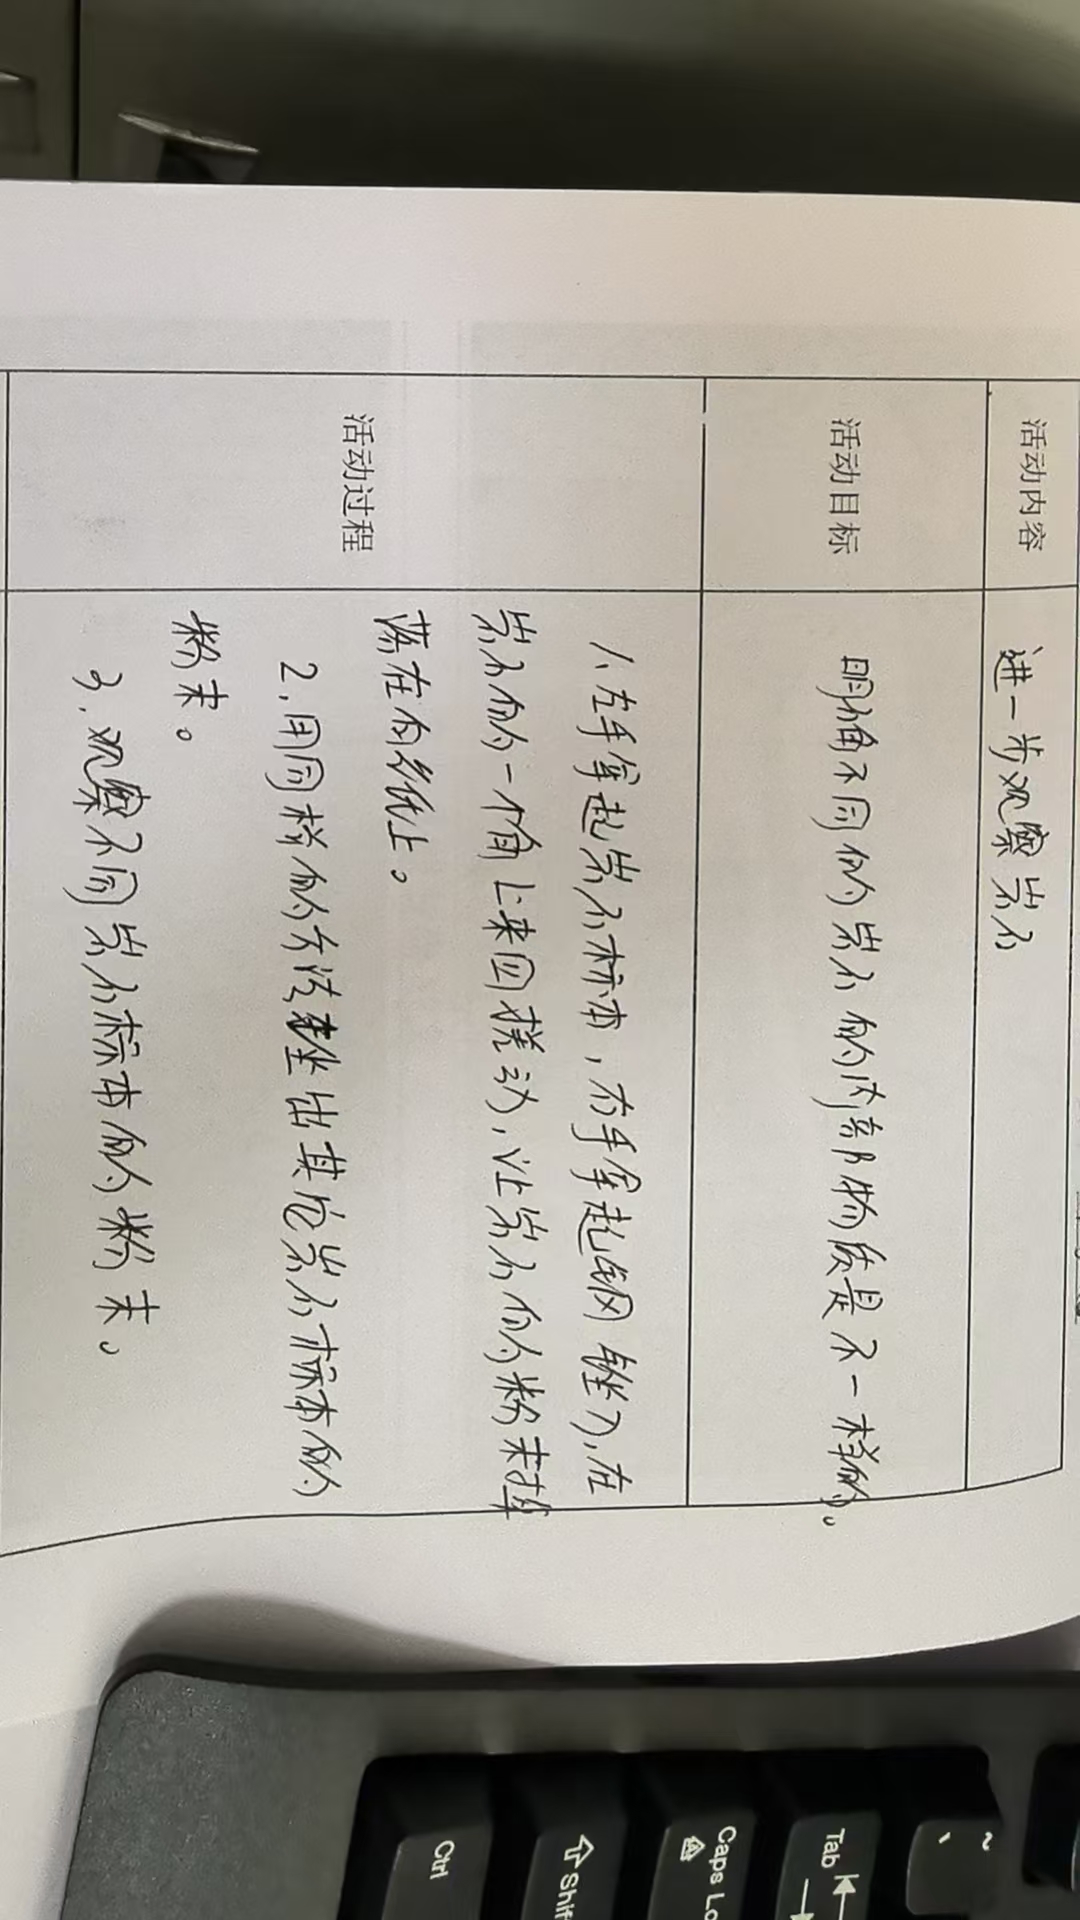 活动内容
进一步观察岩石
活动目标
明确不同的岩石的内部物质是不一样的。
活动过程
1、左手拿起岩石标本,右手拿起钢锉刀,在
岩石的一个角上来回搓动,让岩石的粉末掉
落在白纸上。
2.用同样的方法锉出其它岩石标本的
粉末。
3.观察不同岩石标本的粉末。
~
、
Tab
Caps Lo
Shif
Ctrl